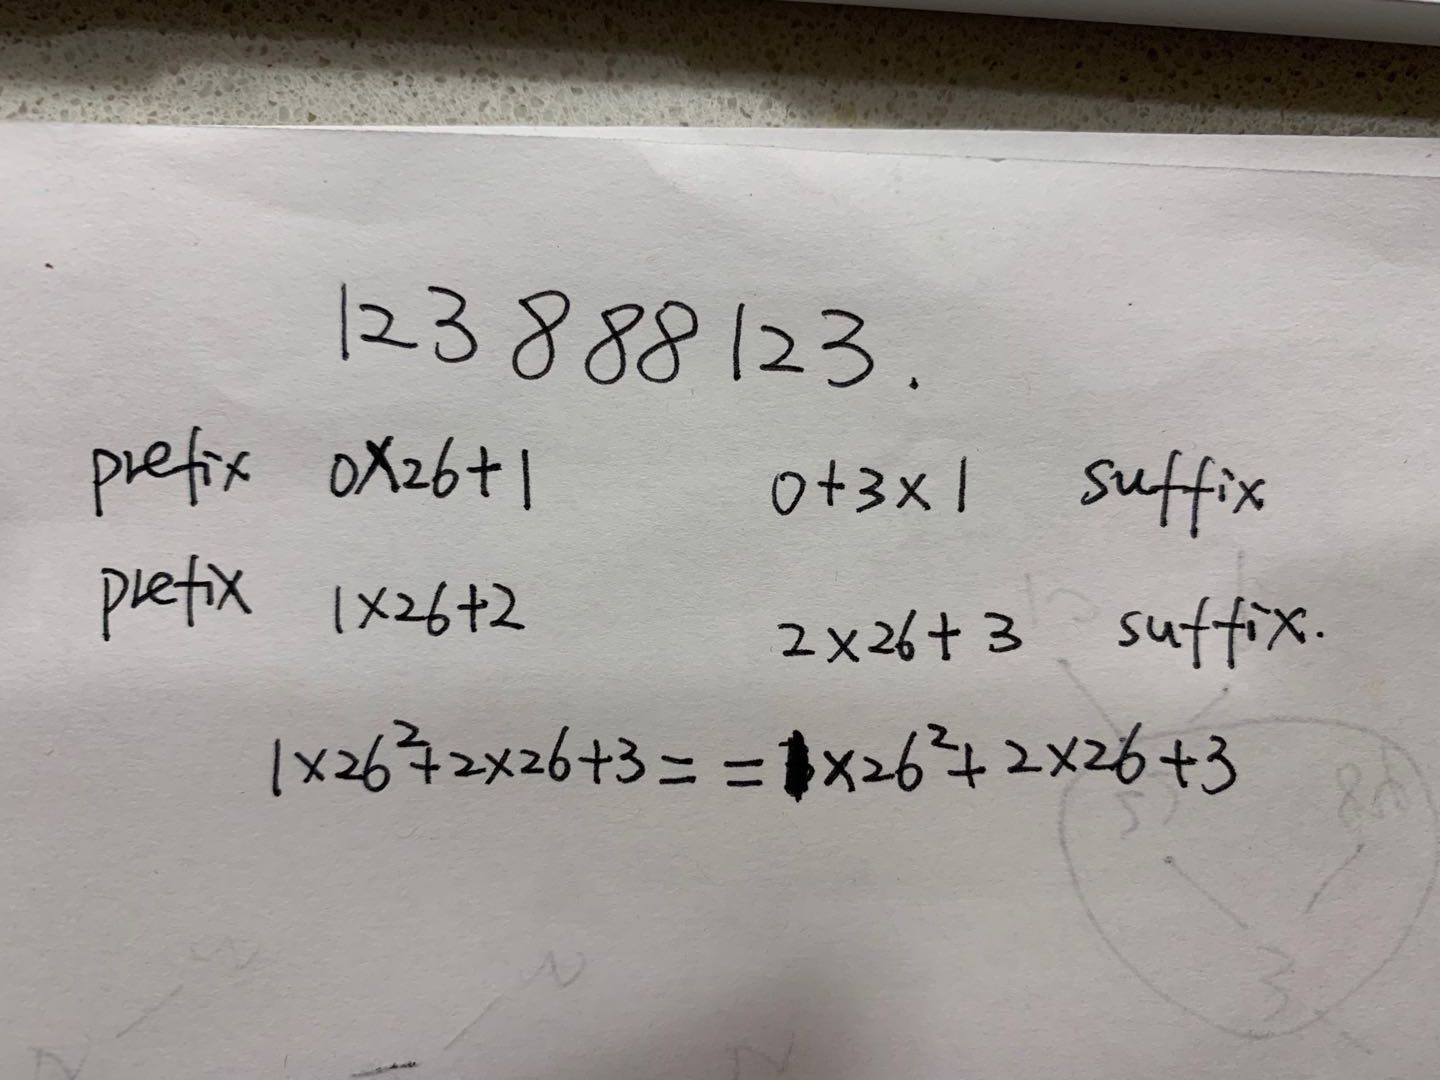 123 888 123.
prefix 0×26+1 0+3×1 suffix
prefix 1×26+2 2×26+3 suffix.
1×26²+2×26+3 = = 1×26²+2×26+3